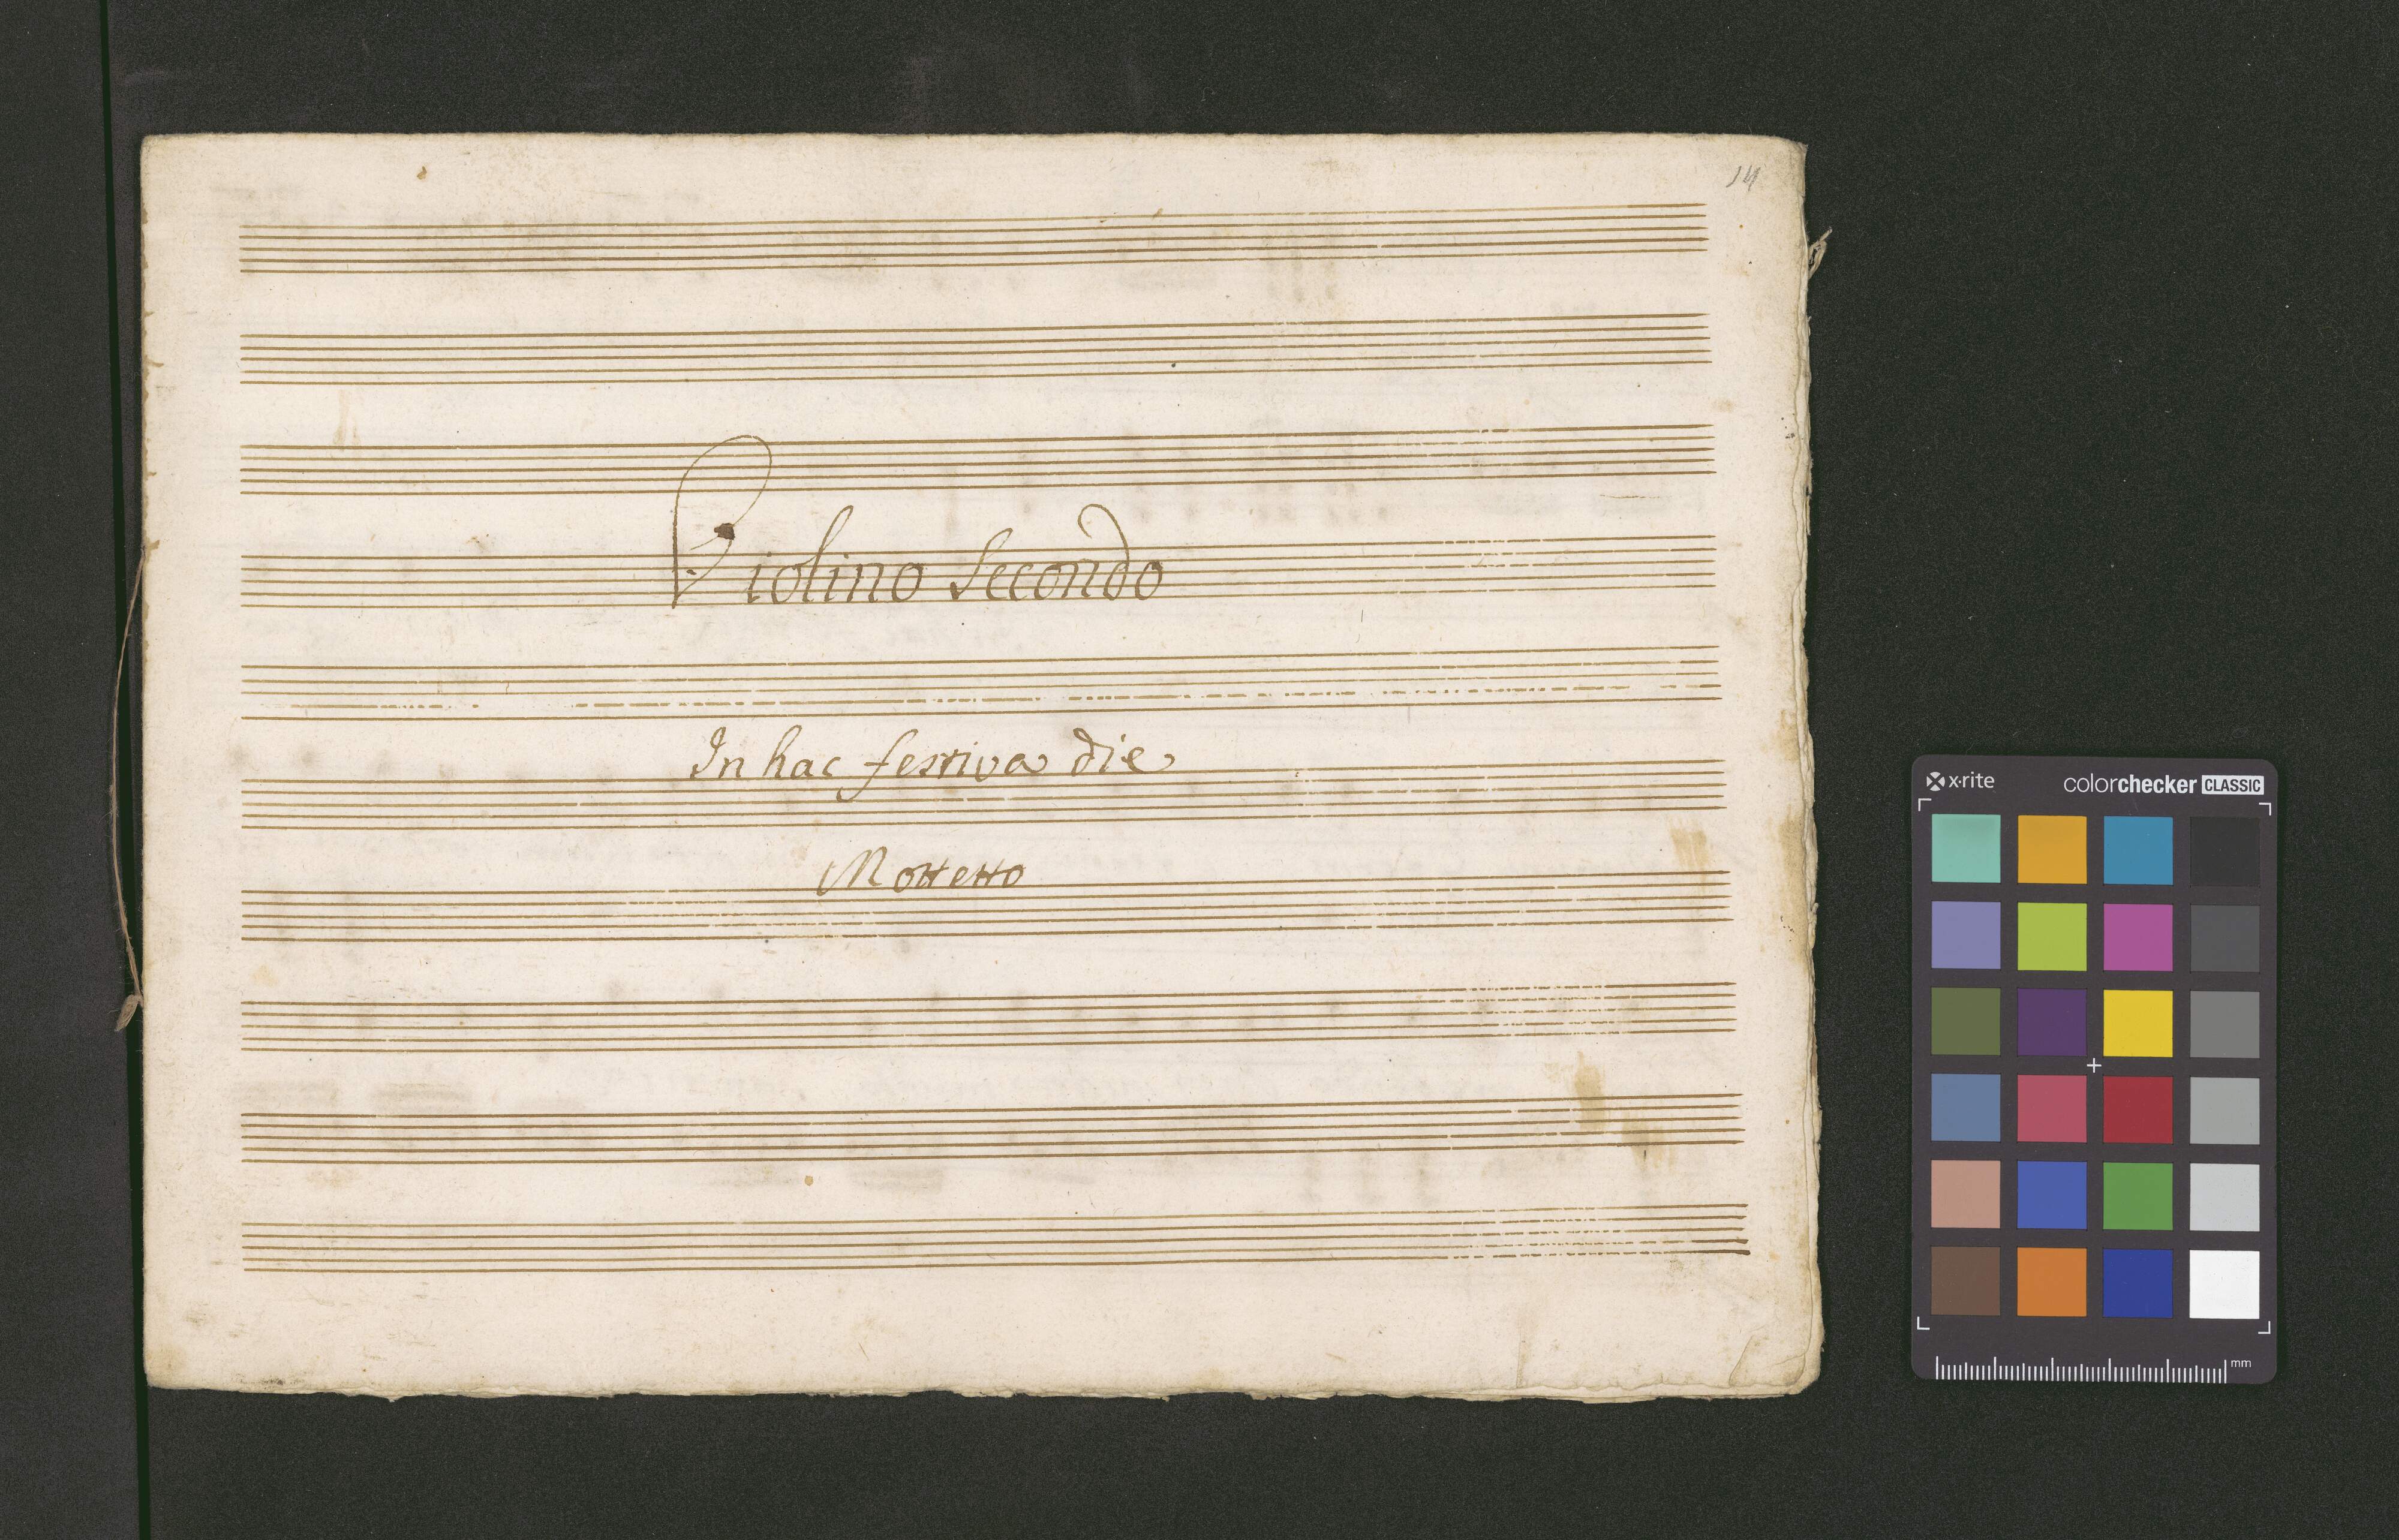 14
Violino Secondo
In hac festiva die
Mottetto
x·rite colorchecker CLASSIC
mm